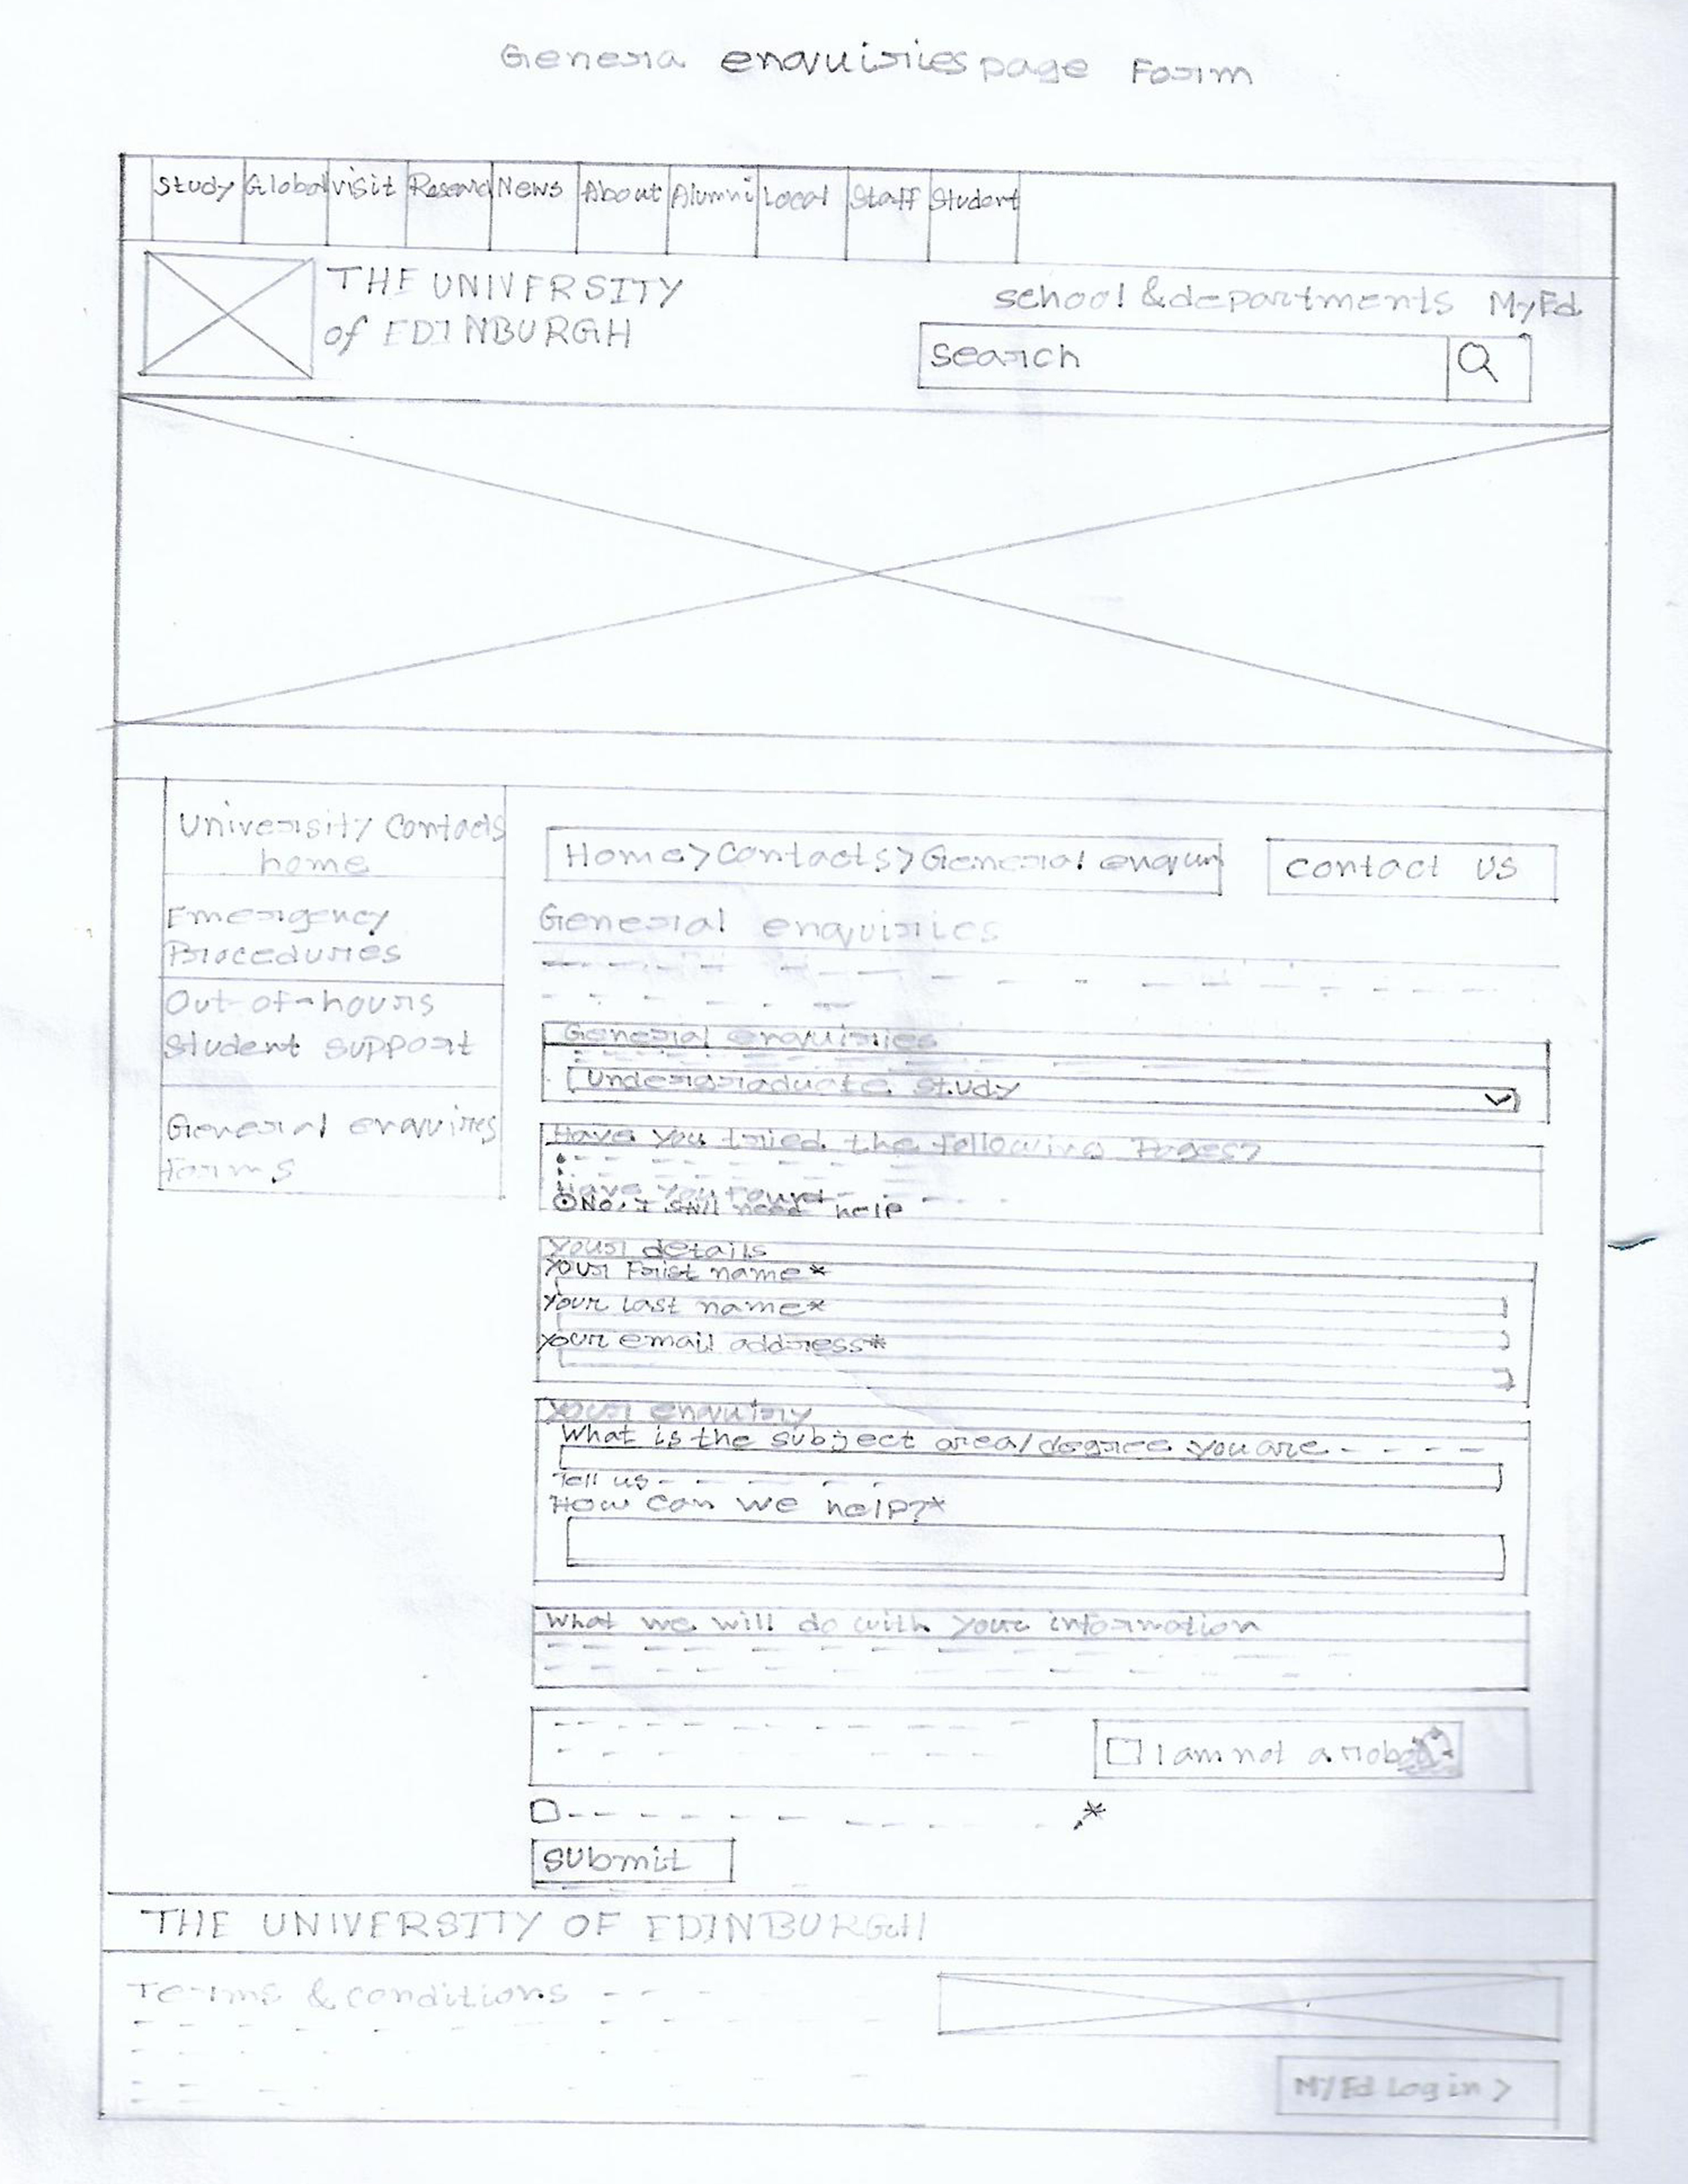 Genera enquiries page Form
Study Global visit Research News About Alumni Local Staff Student
THE UNIVERSITY
of EDINBURGH
school & departments MyEd
Search
University Contacts
home
Emergency
Procedures
Out-of-hours
Student support
General enquires
forms
Home>Contacts>General enquir
Contact US
General enquiries
General enquiries
Undergraduate study
Have you tried the following Pages?
Have you found
No, I still need help
Your details
Your Frist name*
Your Last name*
Your email address*
Your enquiry
What is the subject area/degree you are
Tell us
How can we help?*
What we will do with your information
I am not a robot
*
Submit
THE UNIVERSITY OF EDINBURGH
Terms & conditions
MyEd Login >